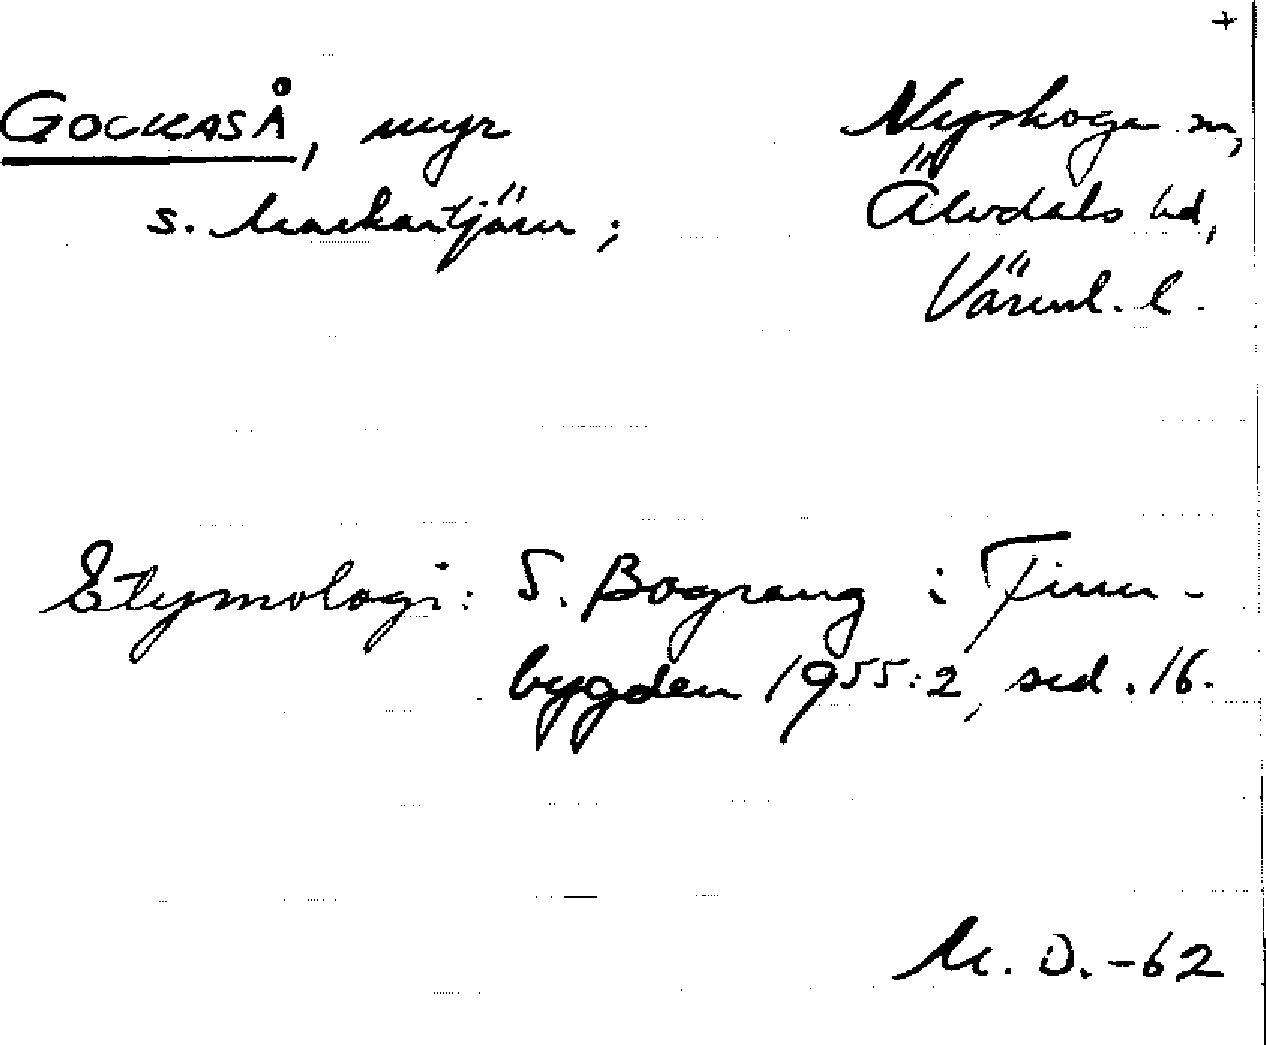 +
GOCKASÅ, myr Nyskoga sn,
s. Mackartjärn; Älvdals hd,
Värml. l.
Etymologi: S. Bograng i Finn-
bygden 1955:2, sid. 16.
M. O. -62